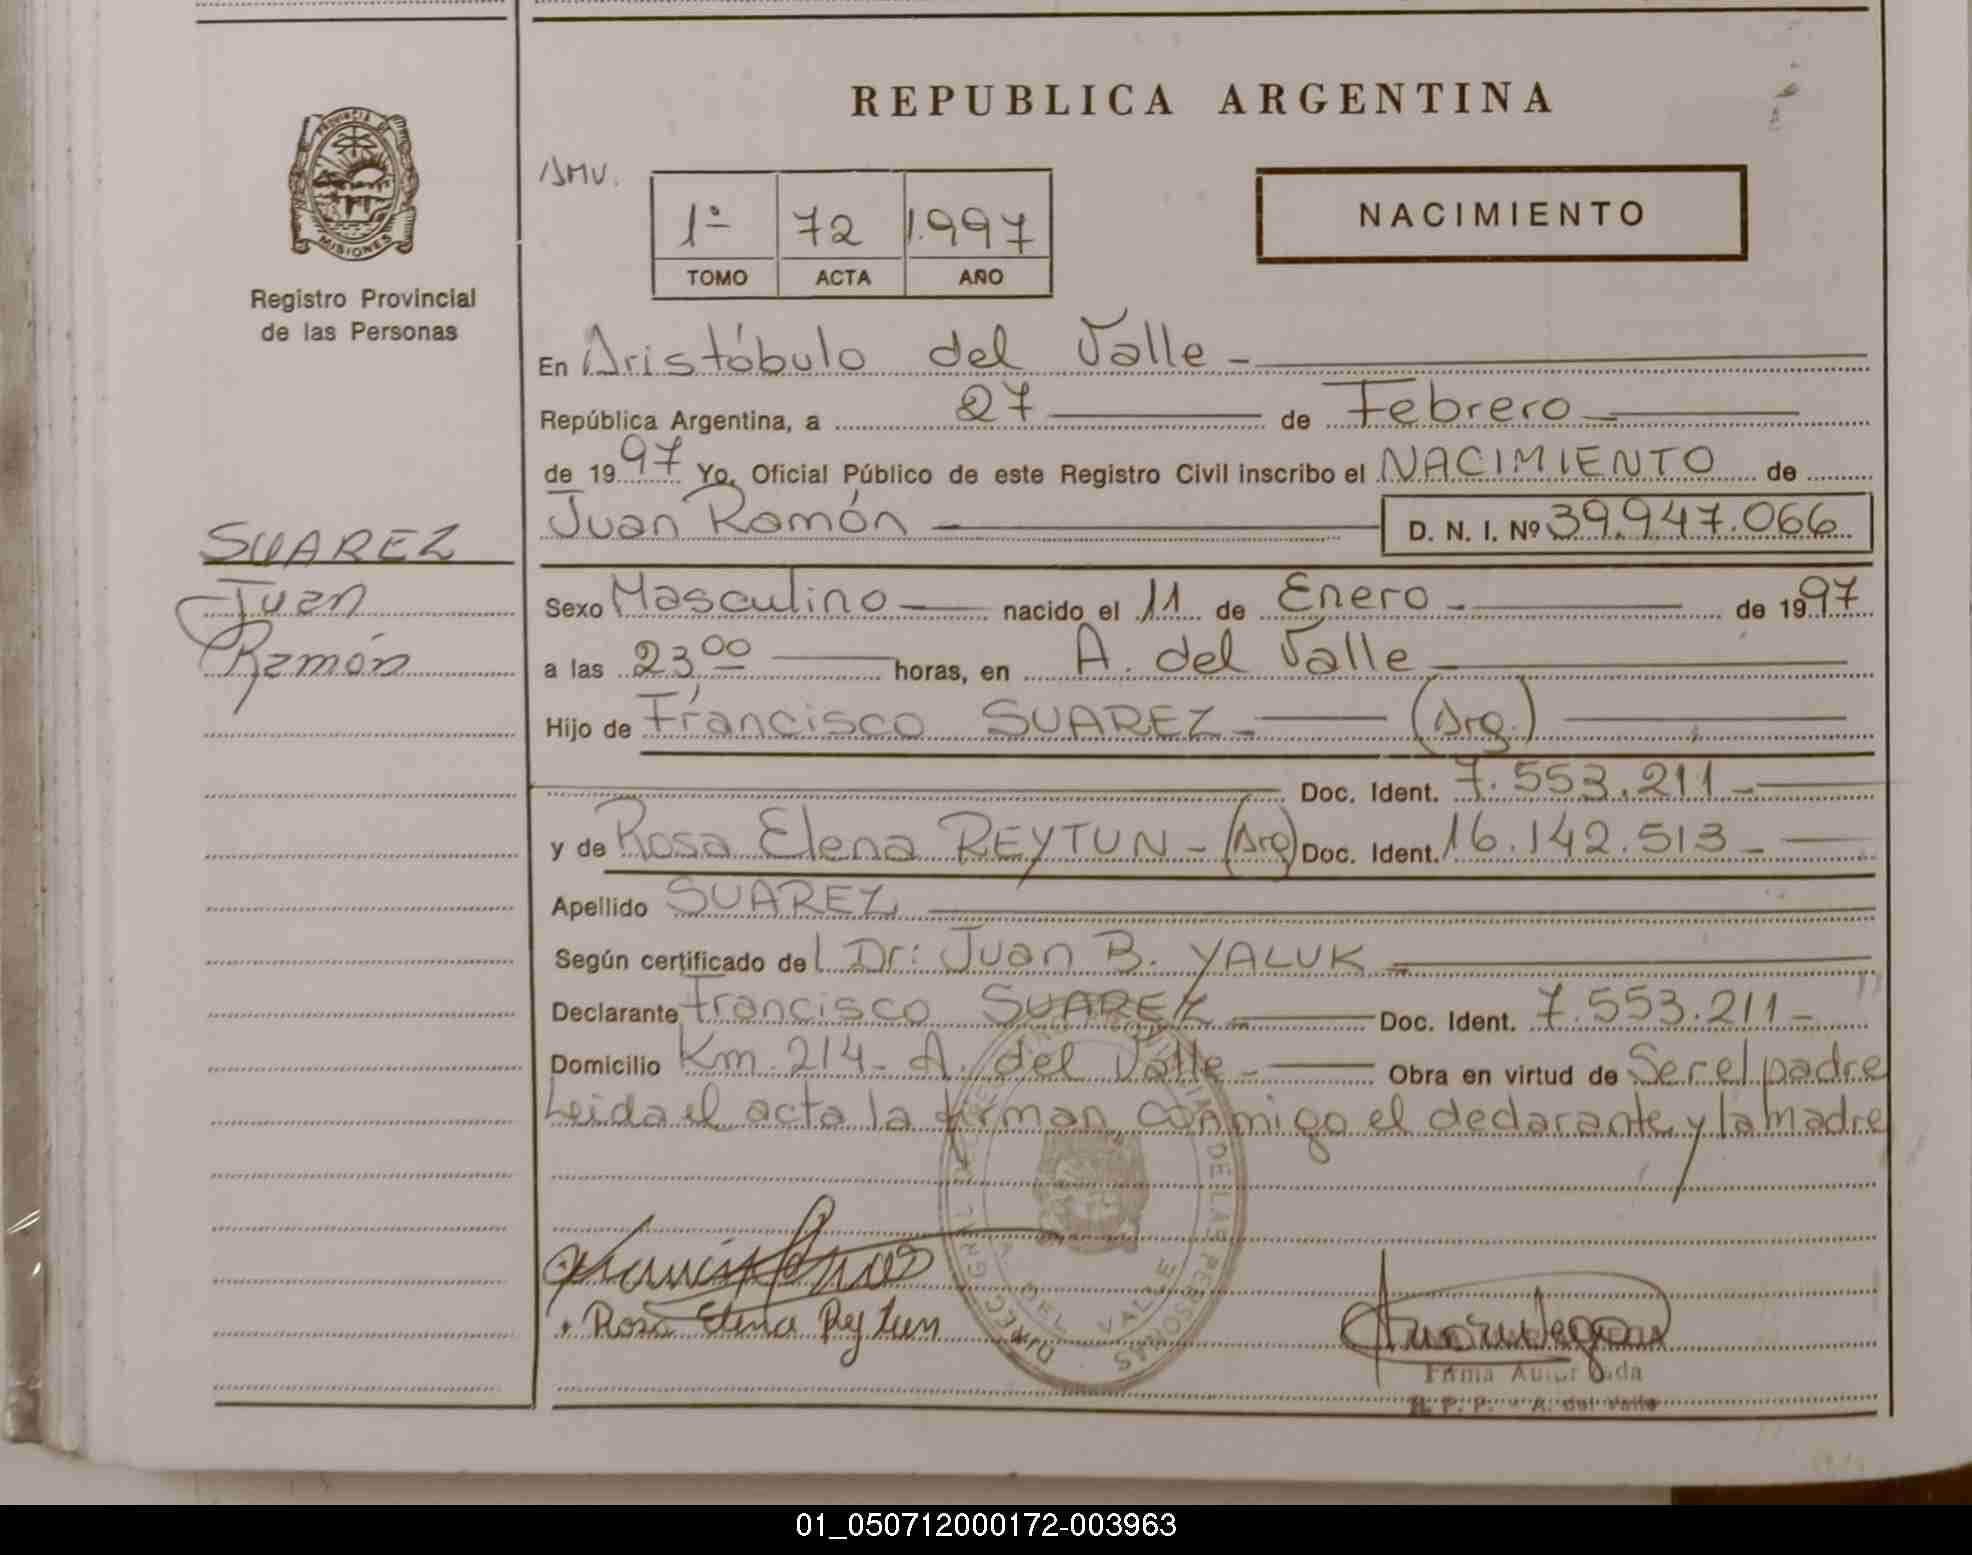 REPUBLICA ARGENTINA
PROVINCIA DE
MISIONES
Registro Provincial
de las Personas
SUAREZ
Juan
Ramón
AMV.
1º 72 1.997
TOMO ACTA AÑO
NACIMIENTO
En Aristóbulo del Valle -
República Argentina, a 27 de Febrero
de 1997 Yo, Oficial Público de este Registro Civil inscribo el NACIMIENTO de
Juan Ramón D. N. I. Nº 39.947.066
Sexo Masculino nacido el 11 de Enero - de 1997
a las 23 00 horas, en A. del Valle
Hijo de Francisco SUAREZ - (Arg.)
Doc. Ident. 7.553.211 -
y de Rosa Elena REYTUN - (Arg) Doc. Ident. 16.142.513 -
Apellido SUAREZ
Según certificado del Dr: Juan B. YALUK
Declarante Francisco SUAREZ Doc. Ident. 7.553.211 -
Domicilio Km. 214 - A. del Valle - Obra en virtud de Ser el padre
Leida el acta la firman, conmigo el declarante y la madre
DE LAS PERSONAS
A. DEL VALLE
Rosa Elena Reytun
Firma Autorizada
R. P. P. - A. del Valle
01_050712000172-003963